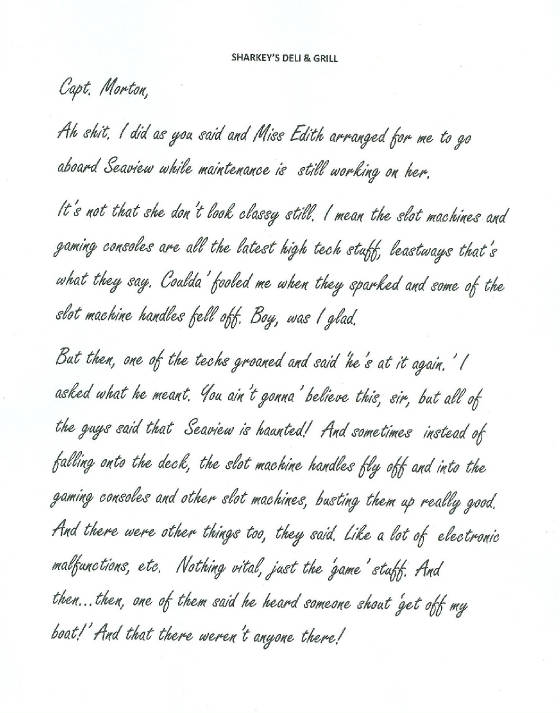 SHARKEY'S DELI & GRILL
Capt. Morton,
Ah shit. I did as you said and Miss Edith arranged for me to go
aboard Seaview while maintenance is still working on her.
It's not that she don't look classy still. I mean the slot machines and
gaming consoles are all the latest high tech stuff, leastways that's
what they say. Coulda' fooled me when they sparked and some of the
slot machine handles fell off. Boy, was I glad.
But then, one of the techs groaned and said 'he's at it again.' I
asked what he meant. You ain't gonna' believe this, sir, but all of
the guys said that Seaview is haunted! And sometimes instead of
falling onto the deck, the slot machine handles fly off and into the
gaming consoles and other slot machines, busting them up really good.
And there were other things too, they said. Like a lot of electronic
malfunctions, etc. Nothing vital, just the 'game' stuff. And
then...then, one of them said he heard someone shout 'get off my
boat!' And that there weren't anyone there!